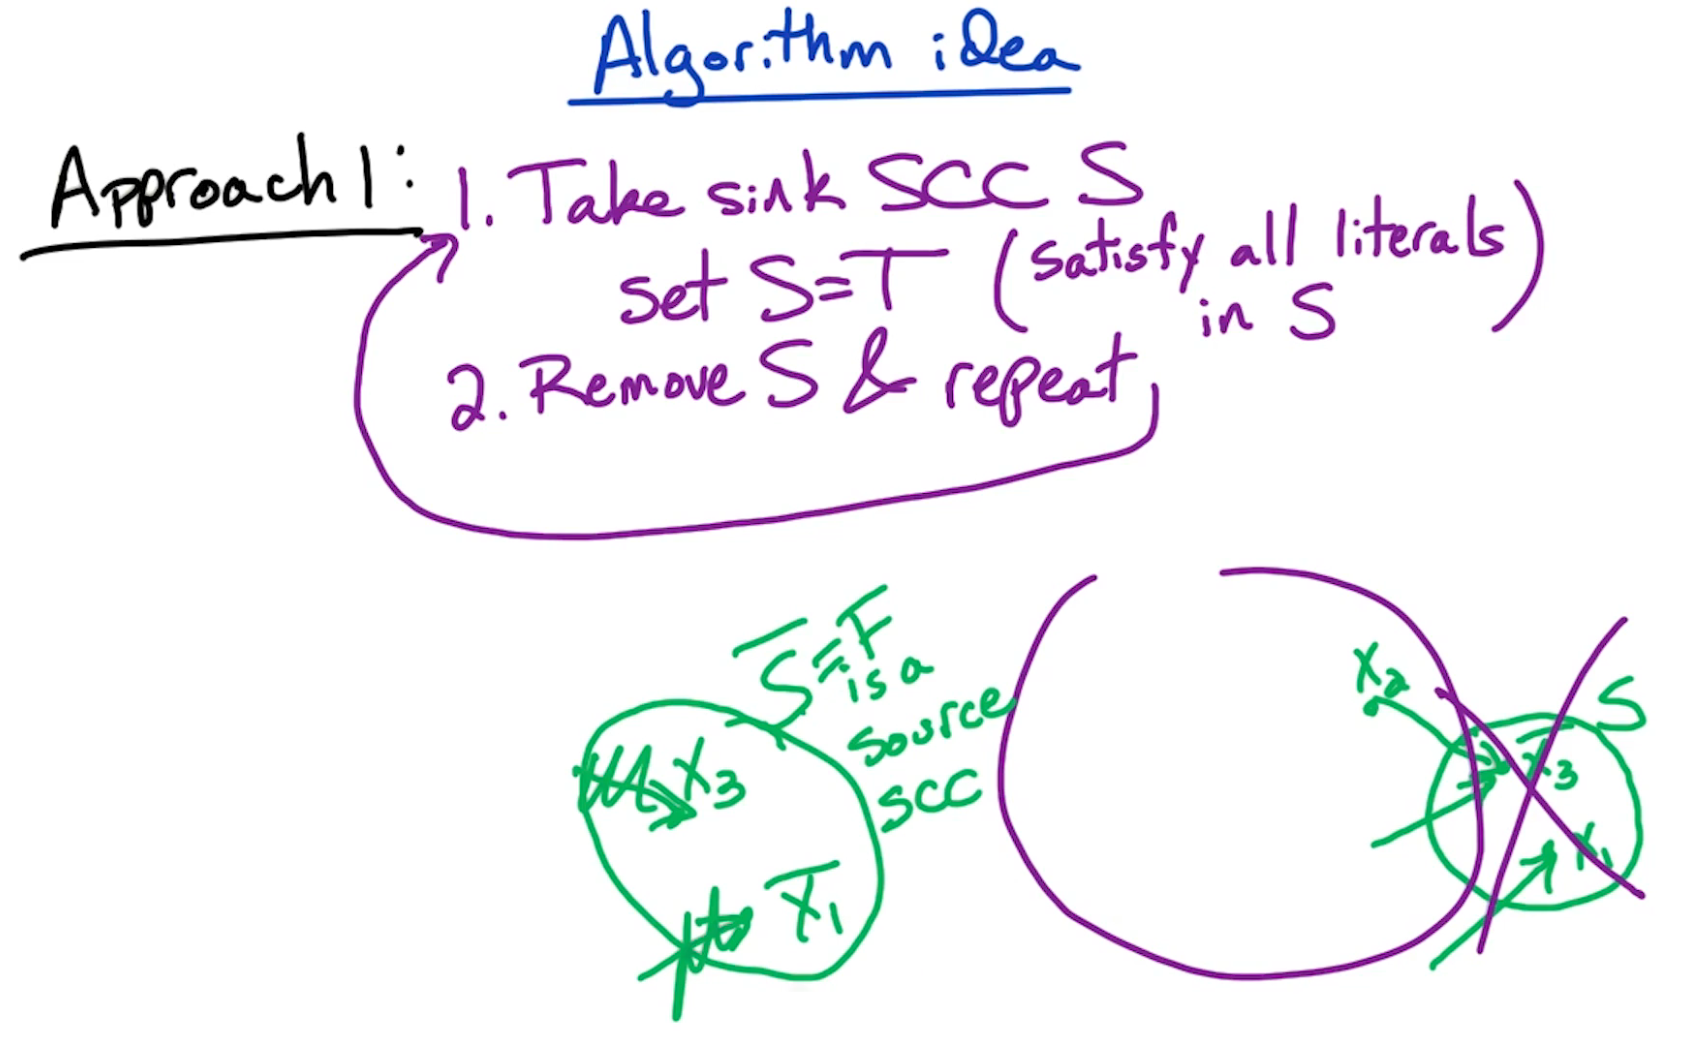 Algorithm idea
Approach 1:
1. Take sink SCC S
set S=T (satisfy all literals in S)
2. Remove S & repeat
S̅=F
is a
source
SCC
X₃
X̅₁
X₂
S
X̅₃
X₁